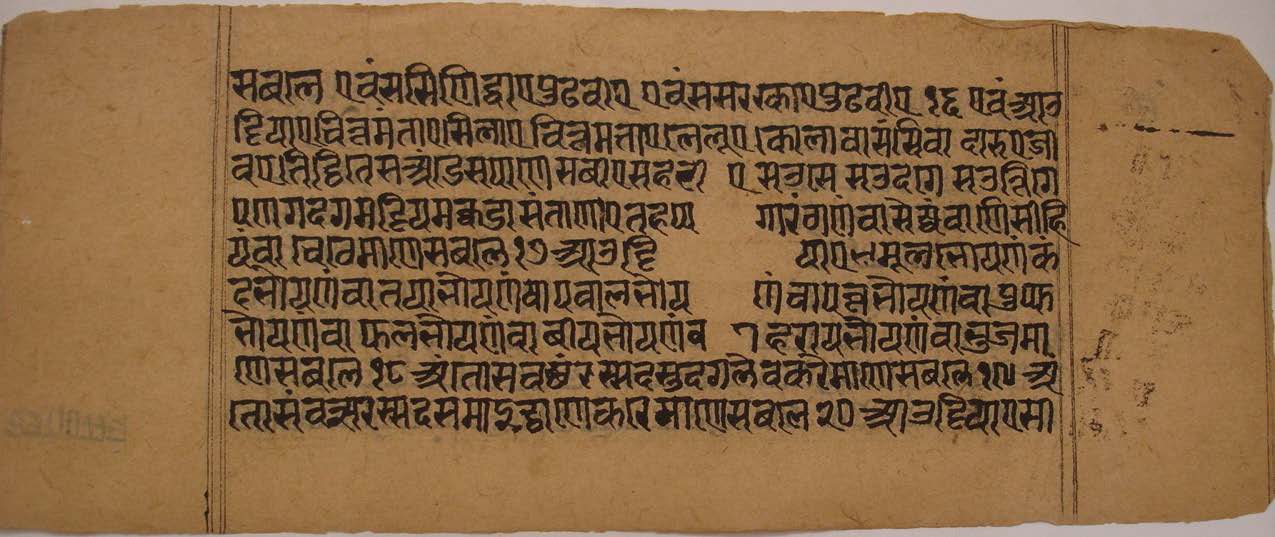 सबले एवं ससिणिद्धाए पुढवीए एवं ससरस्काए पुढवीए १६ एवं आउ
ट्टियाए चित्तमंताए सिलाए चित्तमंताए लेलूए कोलावासंसिवा दारुए जी
वपतिट्ठिते सअंडे सपाणे सबीए सहरी ए सउसे सउदगे सउत्तिंगे
पणगदगमट्टियमक्कडा संताणाए तहप्प गारं ठाणं वा सेज्जं वा णिसीहि
यं वा चेतेमाणे सबले १७ आउट्टि याए मूलभोयणं क
दभोयणं वा तयाभोयणं वा पवालभोय णं वा पत्तभोयणं वा पुप्फ
भोयणं वा फलभोयणं वा बीयभोयणं व हरियभोयणं वा भुंजमा
णे सबले १८ अंतो संवच्छरस्स दस दगलेवे करेमाणे सबले १९ अं
तो संवच्छरस्स दस माइट्ठाणे करेमाणे सबले २० आउट्टियाए सी